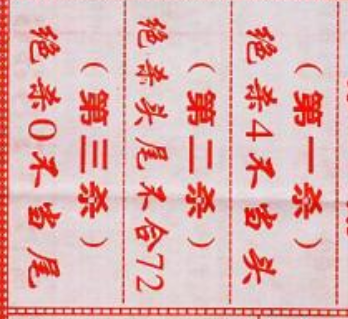 （第一条）
绝杀4不当头
（第二条）
绝杀头尾不合72
（第三条）
绝杀0不当尾